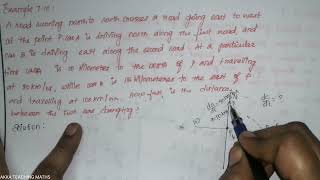 Example 7.10:
A road running north to north crosses a road going east to west
at the point P. Car A is driving north along the first road, and
car B is driving east along the second road. At a particular
time car A is 10 kilometers to the north of P and travelling
at 80 km/hr, while car B is 15 kilometers to the east of P
and travelling at 100 km/hr. How fast is the distance
between the two cars changing?
Solution:
AKKA TEACHING MATHS